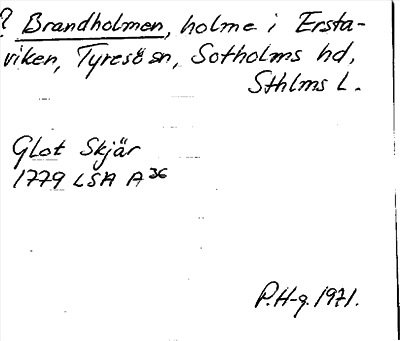 ? Brandholmen, holme i Ersta-
viken, Tyresö sn, Sotholms hd,
Sthlms L.
Glot Skjär
1779 LSA A36
P.H-g. 1971.